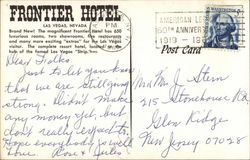 FRONTIER HOTEL
LAS VEGAS, NEVADA
Brand New! The magnificent Frontier Hotel has 650
luxurious rooms, two showrooms, five restaurants
and many more exciting "extras" for the Las Vegas
visitor. The complete resort hotel, located in the
hub of the famed Las Vegas "Strip."
PM
AMERICAN LE
50TH ANNIVER
1919 - 19
Post Card
Dear Folks
Just to let you know
that we are still going
strong. Didn't make
any money yet, but
don't really expect to.
Hope everybody is well
Love Rose & Jules
Mr & Mrs J Stern
215 Stonehouse Rd
Glen Ridge
New Jersey 07028